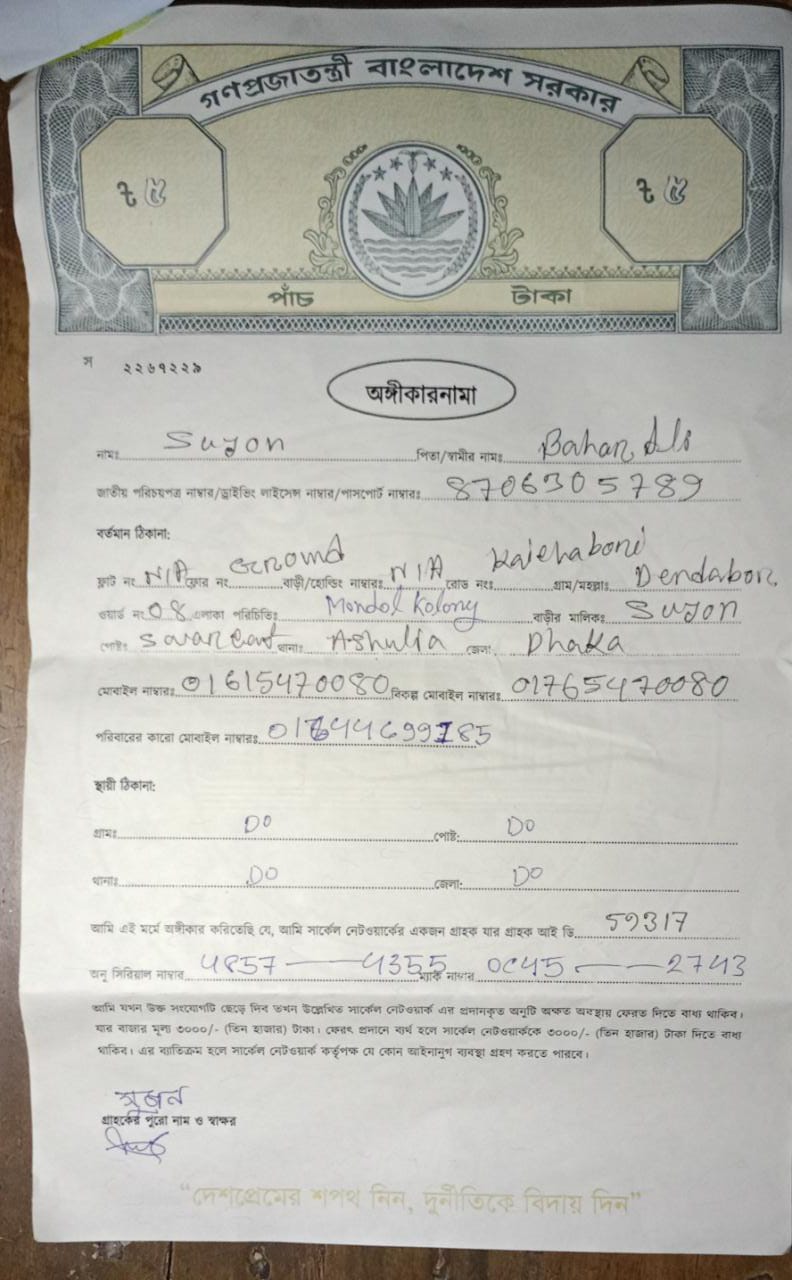 গণপ্রজাতন্ত্রী বাংলাদেশ সরকার
৳ ৫ ৳ ৫
পাঁচ টাকা
স ২২৬৭২২৯
অঙ্গীকারনামা
নামঃ Sujon পিতা/স্বামীর নামঃ Bahar Ali
জাতীয় পরিচয়পত্র নাম্বার/ড্রাইভিং লাইসেন্স নাম্বার/পাসপোর্ট নাম্বারঃ 8706305789
বর্তমান ঠিকানা:
ফ্লাট নং N/A ফ্লোর নং Ground বাড়ী/হোল্ডিং নাম্বারঃ N/A রোড নংঃ গ্রাম/মহল্লাঃ Dendabor
ওয়ার্ড নং 08 এলাকা পরিচিতিঃ Mondol Kolony বাড়ীর মালিকঃ Sujon
পোষ্টঃ Savar Cant থানাঃ Ashulia জেলা: Dhaka
মোবাইল নাম্বারঃ 01615470080 বিকল্প মোবাইল নাম্বারঃ 01765470080
পরিবারের কারো মোবাইল নাম্বারঃ
স্থায়ী ঠিকানা:
গ্রামঃ Do পোষ্ট: Do
থানাঃ Do জেলা: Do
আমি এই মর্মে অঙ্গীকার করিতেছি যে, আমি সার্কেল নেটওয়ার্কের একজন গ্রাহক যার গ্রাহক আই ডি 59317
অনু সিরিয়াল নাম্বার 4857 — 4355 ম্যাক নাম্বার 0C45 — 2743
আমি যখন উক্ত সংযোগটি ছেড়ে দিব তখন উল্লেখিত সার্কেল নেটওয়ার্ক এর প্রদানকৃত অনুটি অক্ষত অবস্থায় ফেরত দিতে বাধ্য থাকিব।
যার বাজার মূল্য ৩০০০/- (তিন হাজার) টাকা। ফেরৎ প্রদানে ব্যর্থ হলে সার্কেল নেটওয়ার্ককে ৩০০০/- (তিন হাজার) টাকা দিতে বাধ্য
থাকিব। এর ব্যতিক্রম হলে সার্কেল নেটওয়ার্ক কর্তৃপক্ষ যে কোন আইনানুগ ব্যবস্থা গ্রহণ করতে পারবে।
সুজন
গ্রাহকের পুরো নাম ও স্বাক্ষর
“দেশপ্রেমের শপথ নিন, দুর্নীতিকে বিদায় দিন”